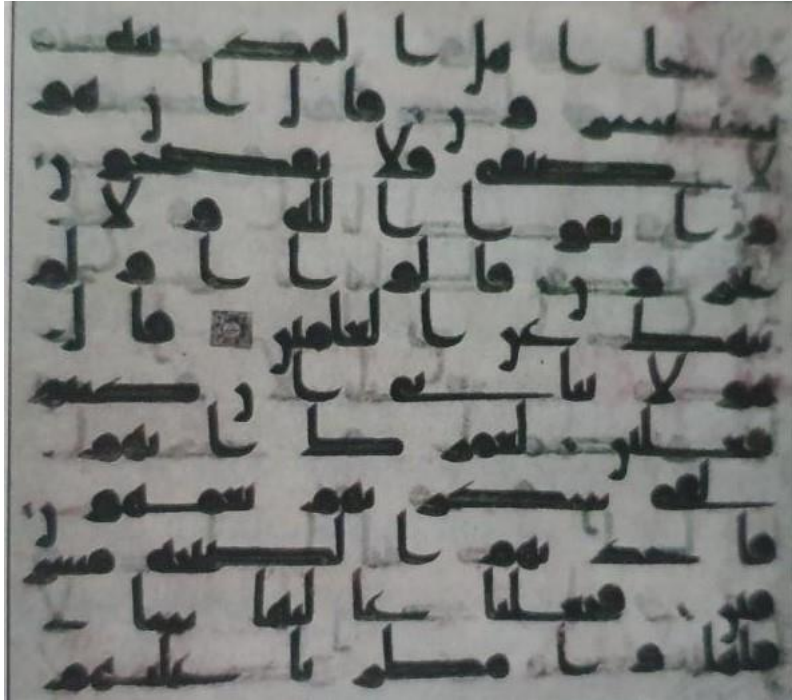 وجا اهل المدينه
يستبشرون قال ان هو
لا ضيفي فلا تفضحون
واتقوا الله ولا
تخزون قالوا اولم
ننهك عن العلمين قال
هولا بناتي ان كنتم
فعلين لعمرك انهم
لفي سكرتهم يعمهون
فاخذتهم الصيحه مشر
قين فجعلنا عاليها سا
فلها وامطرنا عليهم